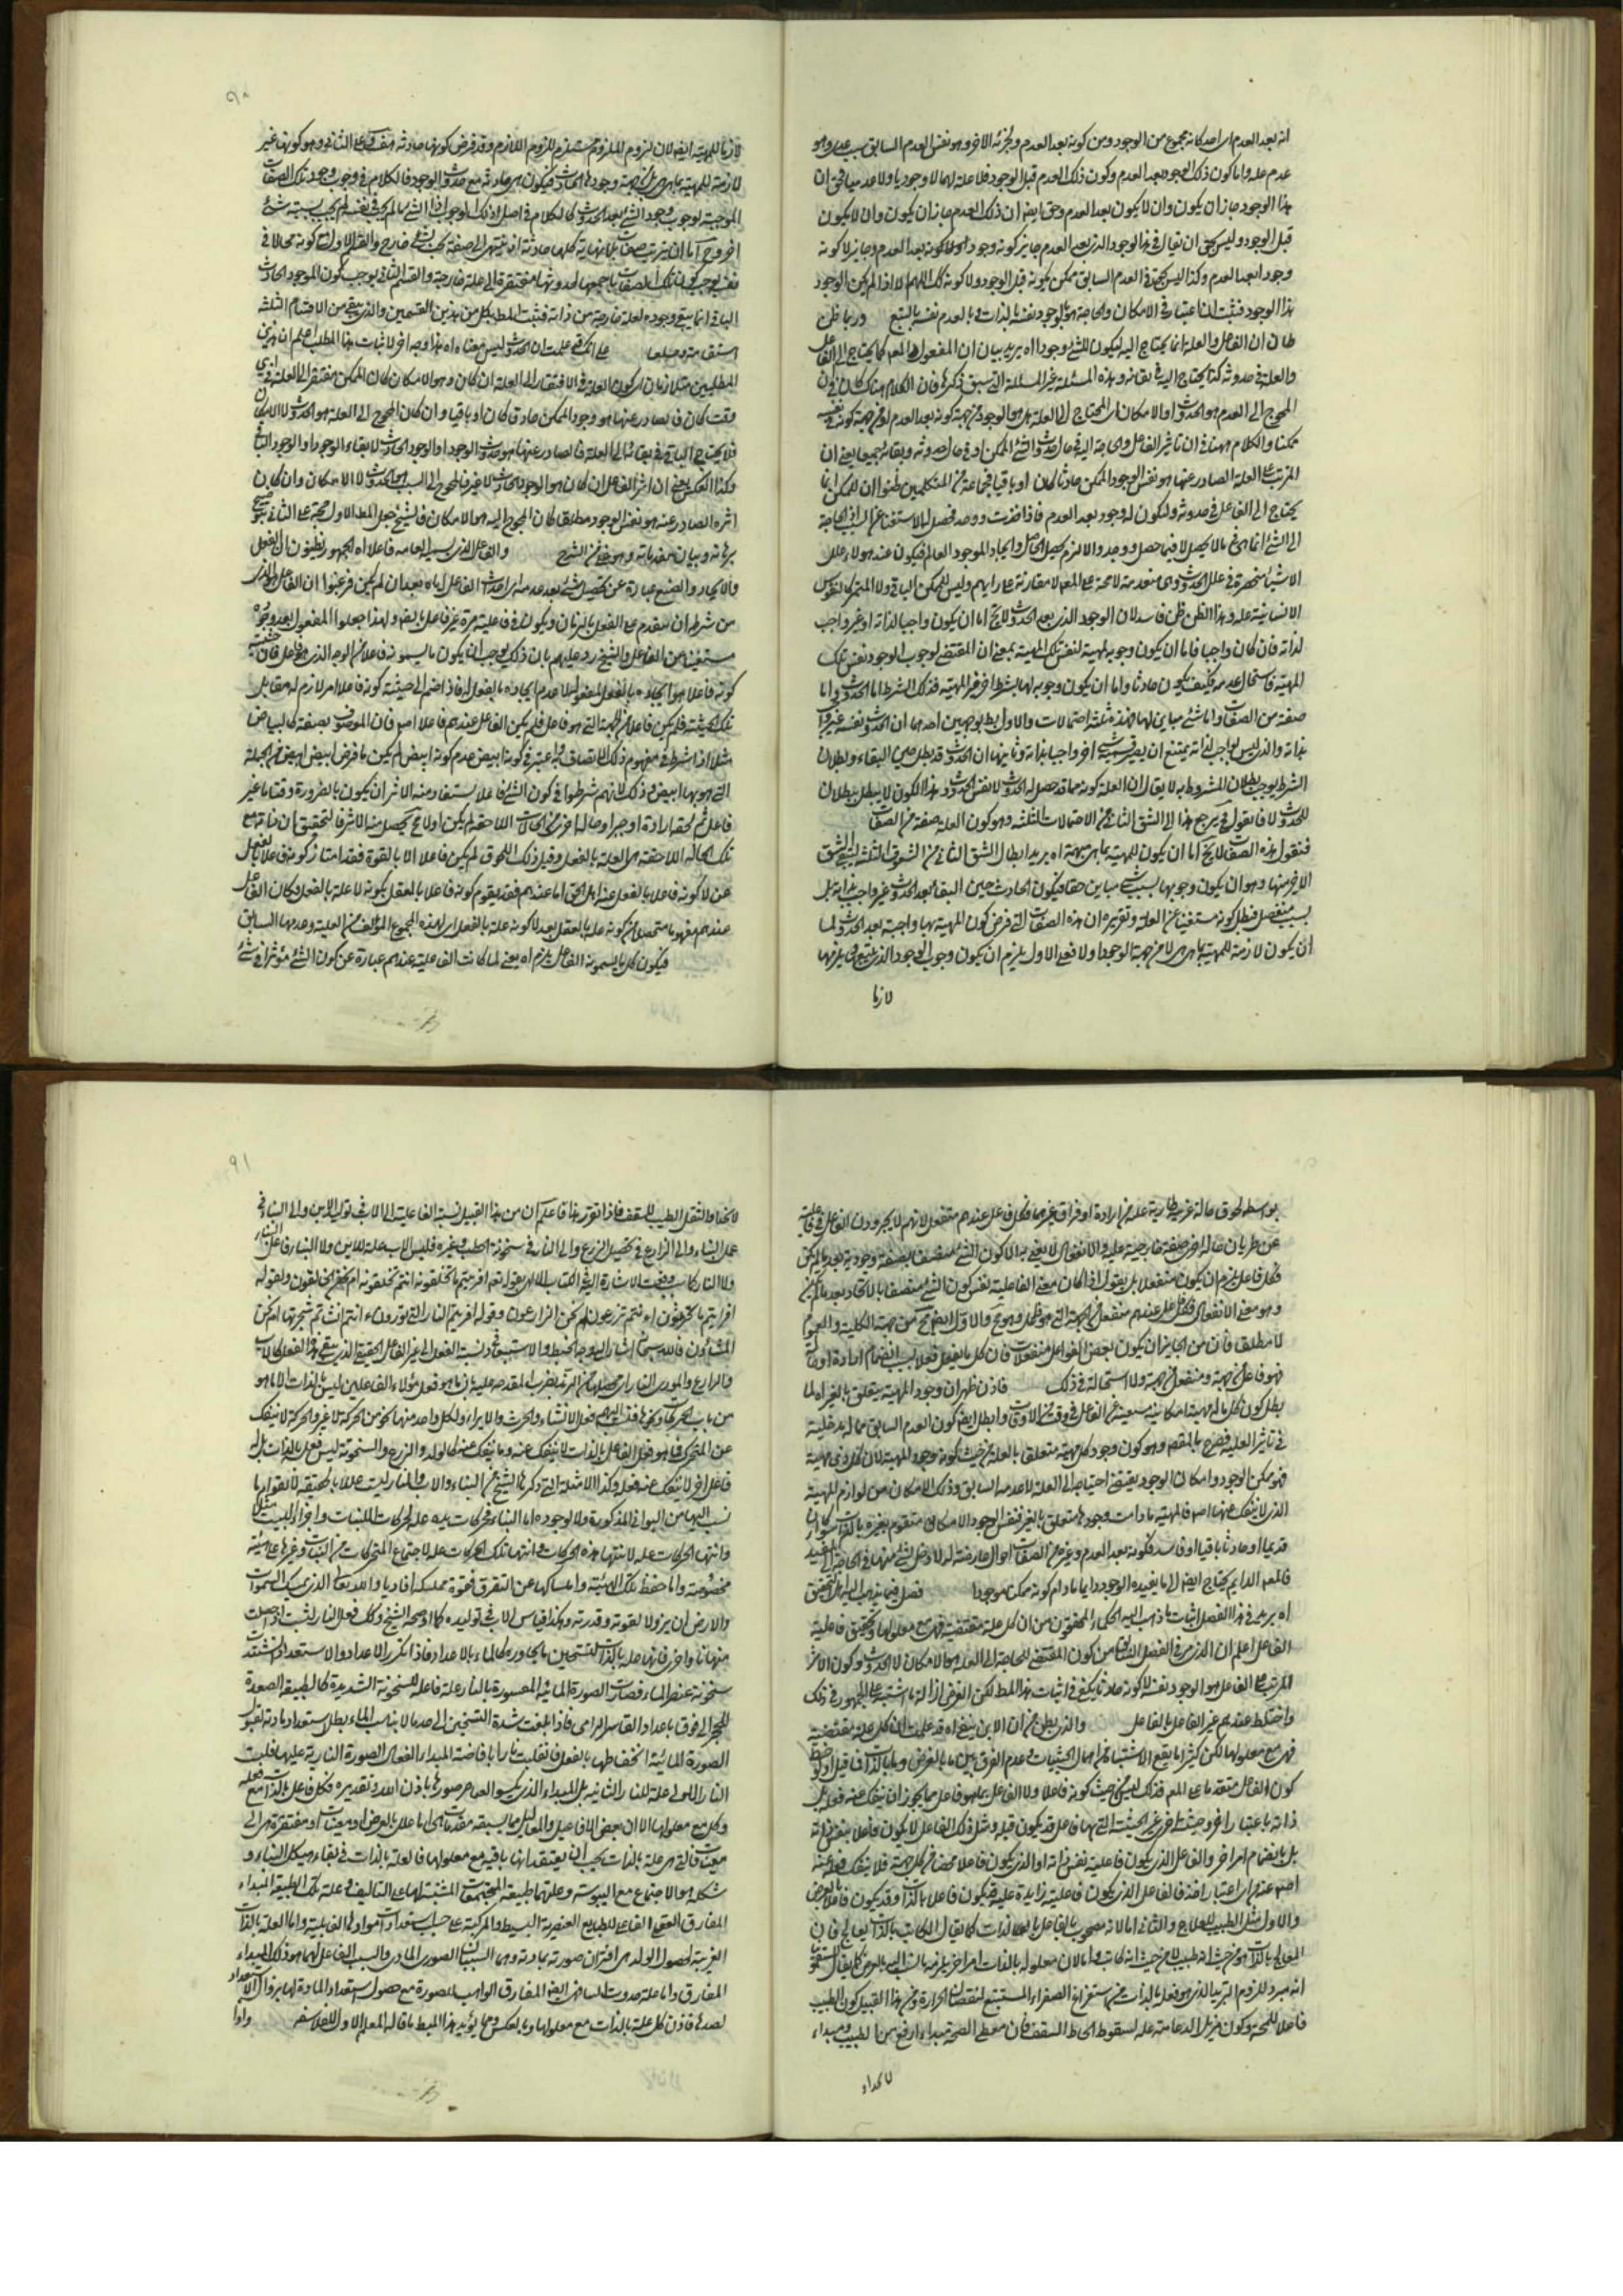 انه بعد العدم امر احد كانه مجموع من الوجود ومن كونه بعد العدم ولجزئه الاخر وهو نفس العدم السابق سبب عدمى وهو
عدم عله واما كون ذلك الوجود بعد العدم وكون ذلك العدم قبل الوجود فلا علة لهما لا وجوديا ولا عدميا فحق ان
هذا الوجود جاز ان يكون وان لا يكون بعد العدم وحق ايضا ان ذلك العدم جاز ان يكون وان لا يكون
قبل الوجود وليس بحق ان يقال فى هذا الوجود الذى بعد العدم جايز كونه وجودا ولا كونه بعد العدم وجايز لا كونه
وجودا بعد العدم وكذا ليس بحق فى العدم السابق ممكن كونه قبل الوجود ولا كونه كذلك اللهم الا اذا لم يكن الوجود
هذا الوجود فثبت اعتبار الامكان والحاجة هو للوجود نفسه بالذات والعدم نفسه بالتبع وربما ظن
ظان ان الفاعل والعلة انما يحتاج اليه ليكون للشئ وجود اه يريد بيان ان المفعول اى المعلول كما يحتاج الى الفاعل
والعلة فى حدوثه كذا يحتاج اليه فى بقائه وهذه المسئلة غير المسئلة التى سبق ذكرها فان الكلام هناك كان فى ان
المحوج الى العدم هو الحدوث او الامكان اى المحتاج الى العلة هل هو الوجود من جهة كونه بعد العدم او من جهة كونه فى نفسه
ممكنا والكلام ههنا فى ان تاثير الفاعل والحاجة اليه فى حال حدوث الشئ الممكن او فى حال حدوثه وبقائه جميعا يعنى ان
المترتب على العلة الصادر عنها هو نفس الوجود الممكن حادثا كان او باقيا فجماعة من المتكلمين ظنوا ان الممكن انما
يحتاج الى الفاعل فى حدوثه وليكون له وجود بعد العدم فاذا حدث ووجد فحصل له الاستغناء عن السبب اذ الحاجة
الى الشئ انما هى فى ما لا يحصل لا فيما حصل ووجد والا لزم تحصيل الحاصل وايجاد الموجود فيكون عند هؤلاء علل
الاشياء منحصرة فى علل الحدوث وهى متقدمة لا محة على المعلول لا مقارنة على رايهم وليس للممكن الباقى ولا المتحرك لنفوس
الانسانية علة وهذا الظن ظن فاسد لان الوجود الذى بعد الحدوث لا يخ اما ان يكون واجبا لذاته او غير واجب
لذاته فان كان واجبا فاما ان يكون وجوبه لمهية لنفس تلك المهية بمعنى ان المقتضى لوجوب الوجود نفس تلك
المهية فاستحال عدمه فكيف يكون حادثا واما ان يكون وجوبه لها بشرط امر غير المهية فذلك الشرط اما الحدوث واما
صفة من الصفات واما شئ مباين لها فهذه ثلثة احتمالات والاول بط بوجهين احدهما ان الحدوث نفسه غير واجب
بذاته والذى ليس بواجب لذاته يمتنع ان يصير به شئ اخر واجبا بذاته وثانيها ان الحدوث قد بطل حين البقاء وبطلان
الشرط يوجب بطلان المشروط به لا يقال ان العلة كونه مما قد حصل له الحدوث لا نفس الحدوث وهذا الكون لا يبطل ببطلان
الحدوث لانا نقول فح يرجع هذا الى الشق الثانى من الاحتمالات الثلثة وهو كون العلة صفة من الصفات
فنقول هذه الصفات لا يخ اما ان يكون للمهية بما هى مهية اه يريد ابطال الشق الثانى من الشقوق الثلثة ليتعين الشق
الاخير منها وهو ان يكون وجوبها بسبب شئ مباين حقا فيكون الحادث حين البقاء بعد الحدوث غير واجب بذاته بل
بسبب منفصل فبطل كونه مستغنيا عن العلة وتقريره ان هذه الصفات التى فرض كون المهية بها واجبة بعد الحدوث اما
ان يكون لازمة للمهية بما هى هى لا من جهة الوجود اولا فعلى الاول يلزم ان يكون وجوب الوجود الذى يتبع ما يلزمها
لازما
لازما للمهية ايضا لان لزوم الملزوم يستلزم لزوم اللازم وقد فرض كونها حادثة هف وعلى الثانى وهو كونها غير
لازمة للمهية بما هى بل من جهة وجودها الحادث فيكون هى حادثة مع حدوث الوجود فالكلام فى وجوب وجود تلك الصفات
الموجبة لوجوب وجود الشئ بعد الحدوث كالكلام فى اصل ذلك الوجوب اذ الشئ ما لم يجب فى نفسه لم يجب بسببه شئ
اخر وح اما ان يترتب صفات بلا نهاية كلها حادثة او ينتهى الى صفة تجب بشئ خارج والقسم الاول مع كونه محالا فى
نفسه يوجب كون تلك الصفات باجمعها لحدوثها مفتقرة الى علة خارجة والقسم الثانى يوجب كون الموجود الحادث
الباقى انما يبقى وجوده لعلة خارجة من ذاته فثبت المط بكل من هذين القسمين والذى يبقى من الاقسام الثلثة
على انك قد علمت ان الحدوث ليس معناه اه هذا وجه اخر لاثبات هذا المطلب اعلم ان هذين
المطلبين متلازمان اى كون العلة فى الافتقار الى العلة ان كان هو الامكان كان الممكن مفتقرا الى العلة فى اى
وقت كان فالصادر عنها هو وجود الممكن حادث كان او باقيا وان كان المحوج الى العلة هو الحدوث لا الامكان
فلا يحتاج الباقى فى بقائه الى العلة فالصادر عنها هو حدوث الوجود او الوجود الحادث لا بقاء الوجود او الوجود الباقى
وكذا العكس يعنى ان اثر الفاعل ان كان هو الوجود الحادث لا غير فالمحوج الى السبب هو الحدوث لا الامكان وان كان
اثره الصادر عنه هو نفس الوجود مطلق كان المحوج اليه هو الامكان فالشيخ جعل المط الاول حجة على الثانى
برهانه وبيان مقدماته وهو ظ من الشرح والفاعل الذى يسميه العامه فاعلا اه الجمهور يظنون ان الفعل
والايجاد والصنع عبارة عن تحصيل الشئ بعد عدمه اى احداث الفاعل اياه بعد ان لم يكن فزعموا ان الفاعل هو الذى
من شرطه ان يتقدم على الفعل بالزمان ويكون فى فاعليته مرة غير فاعل بالفعل ولهذا جعلوا المفعول بعد وجوده
مستغنيا عن الفاعل والشيخ رد عليهم بان ذلك يوجب ان يكون ما يسمونه فاعلا من الوجه الذى هو فاعل فان حيثية
كونه فاعلا هو ايجاده بالفعل لمفعول لا عدم ايجاده بالفعل له فاذا ضم الى حيثية كونه فاعلا امر لازم له مقابل
تلك الحيثية فلم يكن فاعلا من الجهة التى هو فاعل فلم يكن الفاعل عندهم فاعلا اصلا فان الموصوف بصفة كالبياض
مثلا اذا اشترط فى مفهوم ذلك الاتصاف واعتبر فى كونه ابيض عدم كونه ابيض لم يكن ما فرض ابيض ابيض من الجهة
التى هو بها ابيض وذلك لانهم شرطوا فى كون الشئ فاعلا يستفاد منه الاثر ان يكون بالضرورة وقتا ما غير
فاعل ثم لحقه ارادة او جبر او حالة اخرى من الحالات اللاحقة لم يكن اولا فح يحصل منه الاثر فالتحقيق ان ذاته مع
تلك الحالة اللاحقة هى العلة بالفعل وقبل ذلك اللحوق لم يكن فاعلا الا بالقوة فقد امتاز كونه فاعلا بالفعل
عن لا كونه فاعلا بالفعل عند اهل الحق اما عندهم فقد يقوم كونه فاعلا بالفعل بكونه لا علة بالفعل وكان الفاعل
عندهم مفهوما متحصلا من كونه علة بالفعل بعد لا كونه علة بالفعل اى لهذه المجموع المؤلف من العلية وعدمها السابق
فيكون كل ما يسمونه الفاعل يلزم اه يعنى لما كانت الفاعلية عندهم عبارة عن كون الشئ مؤثرا فى شئ
بواسطه لحوق حالة غريبة طارية عليه من ارادة او فراق غيرها فكل فاعل عندهم منفعل لانهم لا يجردون الفاعل فى فاعليته
عن طريان حالة اخرى صفة خارجية عليه والانفعال لا يعنى به الا كون الشئ متصفا بصفة وجودية بعد ما لم يكن
فكل فاعل يلزم ان يكون منفعلا بل يقول اذا كان معنى الفاعلية نفس كون الشئ متصفا بالايجاد بعد ما لم يكن
وهو معنى الانفعال فكل فاعل عندهم منفعل من الجهة التى هو فاعل وهو مح والاول ايضا مح من جهة الكلية والعموم
لا مطلقا فان من الجايز ان يكون بعض الفواعل منفعلات فان كل ما يفعل فعلا بسبب انضمام ارادة او حالة
فهو فاعل من جهة ومنفعل من جهة ولا استحالة فى ذلك فاذن ظهر ان وجود المهية يتعلق بالغير اه لما
بطل كون كل ما له مهية امكانية مستغنية عن الفاعل فى وقت من الاوقات وابطل ايضا كون العدم السابق مما له مدخلية
فى تاثير العلية فصرح بالمقصود وهو كون وجود كل مهية متعلق بالعلة من حيث كونه وجود المهية لان كل ذى مهية
فهو ممكن الوجود وامكان الوجود يقتضى احتياجه الى العلة لا عدمه السابق وذلك الامكان من لوازم المهية
الذى لا ينفك عنها اصلا فالمهية ما دامت وجودها متعلق بالغير فنفس الوجود الامكانى متقوم بغيره بالذات سواء كان
قديما او حادثا باقيا او فاسدا فكونه بعد العدم وغيره من الصفات احوال عارضة له لا دخل لشئ منها فى الحاجة الى المفيد
فالمعلول الدايم يحتاج ايضا الى ما يفيده الوجود دايما ما دام كونه ممكنا موجودا فصل فيما يذهب اليه اهل التحقيق
اه يريد فى هذا الفصل اثبات ما ذهب اليه الحكماء المحققون من ان كل علة مقتضية فهى مع معلولها وتحقيق فاعلية
الفاعل اعلم ان الذى مر فى الفصل السابق من كون المقتضى للحاجة الى العلة هو الامكان لا الحدوث وكون الاثر
المترتب على الفاعل هو الوجود نفسه لا كونه حادثا يكفى فى اثبات هذا المط لكن الغرض ازالة ما اشتبه على الجمهور فى ذلك
واختلط عندهم غير الفاعل بالفاعل والذى يظن من ان الابن يبقى اه قد علمت ان كل علة مقتضية
فهى مع معلولها لكن كثيرا ما يقع الاشتباه من اهمال الحيثيات وعدم الفرق بين ما بالعرض وما بالذات
كون الفاعل متقدما على المعلول فذلك ليس من حيث كونه فاعلا ولا الفاعل بما هو فاعل مما يجوز ان ينفك عنه فعله بل
ذاته باعتبار اخر وحيثية اخرى غير الحيثية التى بها فاعل قد يكون قبله ومثل ذلك الفاعل لا يكون فاعلا بنفس ذاته
بل بانضمام امر اخر والفاعل الذى يكون فاعليته نفس ذاته او الذى يكون فاعلا محضا من كل جهة فلا ينفك فعله عنه
والاول مثل الطبيب للعلاج والثانى اما لانه مصحوب بالفاعل بالذات كما يقال الكاتب بالذات يعالج فان
المعالج بالذات هو من حيث انه طبيب لا من حيث انه كاتب واما لان معلوله بالذات امر اخر يلزمه
انه مبرد للزوم التبريد الذى هو فعل بالذات من استفراغ الصفراء المستتبع لنقصان الحرارة ومن هذا القبيل كون الطبيب
فاعلا للصحة وكون مزيل الدعامة علة لسقوط الحائط السقف فان معطى الصحة مبداء ارفع من الطبيب ومبداء
الانحدار
لانحداره الثقل الطبيعى للسقف فاذا تقرر هذا فاعلم ان من هذا القبيل نسبة الفاعلية الى الاب فى توليد الابن والى البناء فى
عمل البناء والى الزارع فى تحصيل الزرع والى النار فى سخونة الحطب وغيره فليس الاب علة للابن ولا النار فاعل النار
ولا النار وقعت الاشارة اليه فى الكتاب الالهى بقوله تع افرايتم ما تخلقونه انتم تخلقونه ام نحن الخالقون وبقوله
افرايتم ما تحرثون اءنتم تزرعونه ام نحن الزارعون وقوله افرايتم النار التى تورون ءانتم انشاتم شجرتها ام نحن
المنشئون فالله سبحانه اشار الى وجه الخبط والاستبعاد نسبة الفعل الى غير الفاعل الحقيقى الذى يبقى هذا الفعل كالاب
والزارع والمورى النار
من باب الحركات وكل واحد منها نحو من الحركة لا غير والحركة لا ينفك
عن المتحرك فما هو فعل الفاعل بالذات لا ينفك عنه وما ينفك عنه كالولد والزرع والسخونة ليس فعله بالذات بل له
فاعل اخر لا ينفك عنه فعله وكذا الامثلة التى ذكرها الشيخ من البناء والاب والنار ليست عللا بالحقيقة لا لقوام ما
نسب اليها من البواقى المذكورة ولا لوجوده اما البناء فحركات يده علة لحركات اللبنات واجزاء البيت مثلا
وانتهاء الحركات علة لانتهاء هذه الحركات وانتهاء تلك الحركات علة لاجتماع المتحركات من اللبنات وغيرها على هيئة
مخصوصة واما حفظ تلك الهيئة وامساكها عن التفرق فقوة ممسكة افادها والله تعالى الذى يمسك السموات
والارض ان يزولا لقوته وقدرته وهكذا قياس الاب فى توليده كما اوضحه الشيخ وكذا فعل النار
منها نار اخرى فانها علة بالذات لتسخين ما يجاوره كالماء بالاعداد فاذا تكرر الاعداد والاستعداد واشتدت
سخونة عنصر الماء فصارت الصورة المائية المقسورة بالنار علة فاعلة للسخونة الشديدة كالطبيعة الصعدة
للحجر الى فوق باعداد القاسر الرامى فاذا بلغت شدة التسخين الى حد ما لا يناسب الماء بطل استعداد مادته لقبول
الصورة المائية انحفاظها بالفعل فانقلبت نارا بافاضة المبداء الفعال الصورة النارية عليها فليست
النار الاولى علة للنار الثانية بل المبداء الذى يكسو العناصر صورها باذن الله وتقديره فكل فاعل بالذات مع فعله
وكل علة مع معلولها الا ان بعض الافاعيل والمعاليل مما يسبقه مقدمات هى اما علل بالعرض او معينات او مفتقرة هى الى
معينات فالتى هى علة بالذات يجب ان يعتقد انها باقية مع معلولها فالعلة بالذات فى بقاء هيكل البناء و
شكله هو الاجتماع مع اليبوسة وعلتها طبيعة المجتمعات المثبتة لها على التاليف وعلة تلك الطبيعة المبداء
المفارق العقلى الفاعل للطبايع العنصرية البسيطة والمركبة على حسب استعدادات المواد فى القابلية واما العلة بالذات
القريبة لحصول الولد هى اقتران صورته بمادته وهما السببان الصورى والمادى والسبب الفاعل لهما هو ذلك المبداء
المفارق واما علة حدوث النار فمن ايضا المفارق الواهب للصورة مع حصول استعداد المادة لها بزوال الاستعداد
لضدها فاذن كل علة بالذات مع معلولها وبالعكس ومما يؤيد هذا المبط ما قاله المعلم الاول للفلاسفه واذا